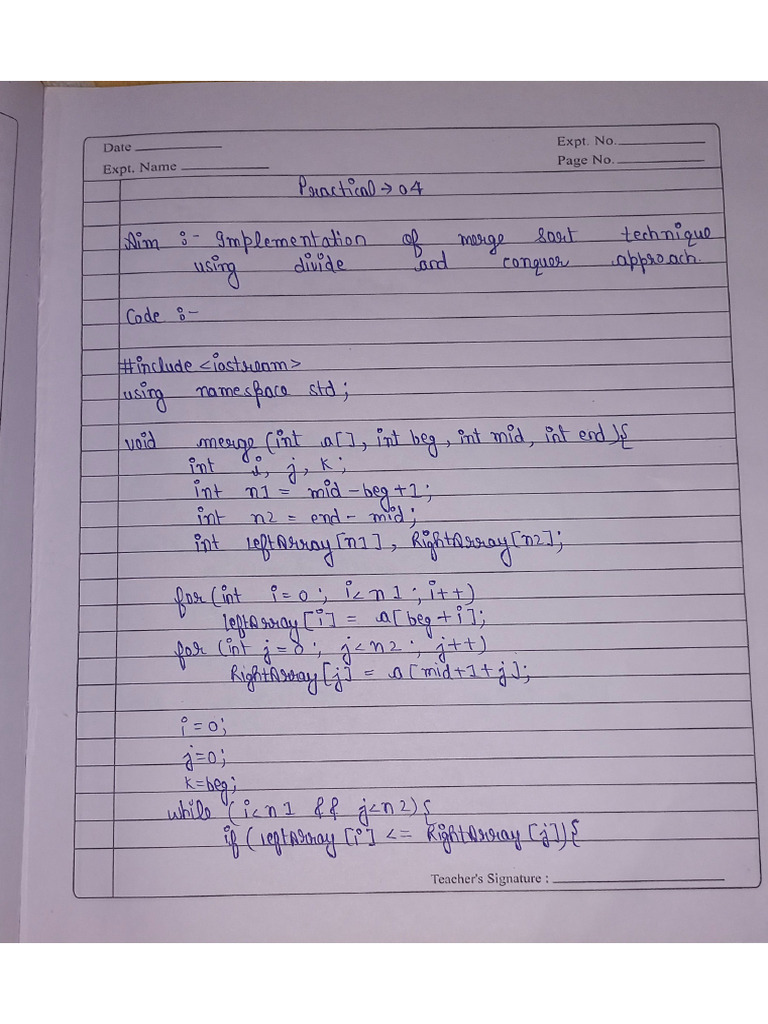 Date
Expt. No.
Expt. Name
Page No.
Practical → 04
Aim :- Implementation of merge sort technique
using divide and conquer approach.
Code :-
#include <iostream>
using namespace std ;
void merge (int a[], int beg, int mid, int end){
int i, j, k ;
int n1 = mid - beg + 1 ;
int n2 = end - mid ;
int LeftArray[n1] , RightArray[n2];
for (int i = 0 ; i < n1 ; i++)
LeftArray[i] = a[beg + i];
for (int j = 0 ; j < n2 ; j++)
RightArray[j] = a[mid + 1 + j];
i = 0;
j = 0;
k = beg;
while (i < n1 && j < n2){
if (LeftArray[i] <= RightArray[j]){
Teacher's Signature :